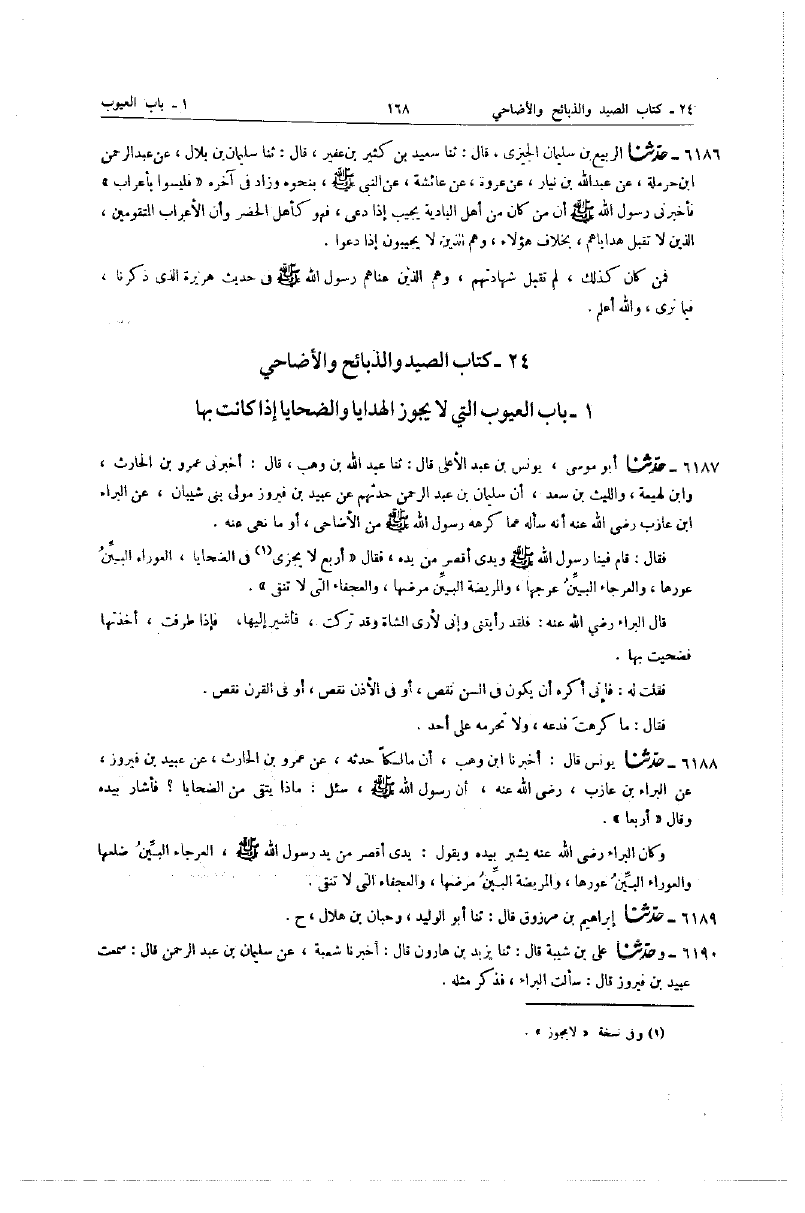 ٢٤ ـ كتاب الصيد والذبائح والأضاحي ١٦٨ ١ ـ باب العيوب
٦١٨٦ ـ حدثنا الربيع بن سليمان الجيزى ، قال : ثنا سعيد بن كثير بن عفير ، قال : ثنا سليمان بن بلال ، عن عبد الرحمن
ابن حرملة ، عن عبد الله بن نيار ، عن عروة ، عن عائشة ، عن النبى ﷺ ، بنحوه وزاد فى آخره « فليسوا بأعراب »
فأخبرنى رسول الله ﷺ أن من كان من أهل البادية يجيب إذا دعى ، فهو كأهل الحضر وأن الأعراب المتقومين ،
الذين لا تقبل هداياهم ، بخلاف هؤلاء ، وهم الذين لا يجيبون إذا دعوا .
فمن كان كذلك ، لم تقبل شهادتهم ، وهم الذين عناهم رسول الله ﷺ فى حديث هريرة الذى ذكرنا ،
فيما نرى ، والله أعلم .
٢٤ ـ كتاب الصيد والذبائح والأضاحي
١ ـ باب العيوب التي لا يجوز الهدايا والضحايا إذا كانت بها
٦١٨٧ ـ حدثنا أبو موسى ، يونس بن عبد الأعلى قال : ثنا عبد الله بن وهب ، قال : أخبرنى عمرو بن الحارث ،
وابن لهيعة ، والليث بن سعد ، أن سليمان بن عبد الرحمن حدثهم عن عبيد بن فيروز مولى بنى شيبان ، عن البراء
ابن عازب رضى الله عنه أنه سأله عما كرهه رسول الله ﷺ من الأضاحى ، أو ما نهى عنه .
فقال : قام فينا رسول الله ﷺ ويدى أقصر من يده ، فقال « أربع لا يجزى(١) فى الضحايا ، العوراء البيِّنُ
عورها ، والعرجاء البيِّنُ عرجها ، والمريضة البيِّن مرضها ، والعجفاء التى لا تنقى » .
قال البراء رضي الله عنه : فلقد رأيتنى وإنى لأرى الشاة وقد تركت ، فأشير إليها، فإذا طرفت ، أخذتها
فضحيت بها .
فقلت له : فإنى أكره أن يكون فى السن نقص ، أو فى الأذن نقص ، أو فى القرن نقص .
فقال : ما كرهتَ فدعه ، ولا تحرمه على أحد .
٦١٨٨ ـ حدثنا يونس قال : أخبرنا ابن وهب ، أن مالكاً حدثه ، عن عمرو بن الحارث ، عن عبيد بن فيروز ،
عن البراء بن عازب ، رضى الله عنه ، أن رسول الله ﷺ ، سئل : ماذا يتقى من الضحايا ؟ فأشار بيده
وقال « أربعا » .
وكان البراء رضى الله عنه يشير بيده ويقول : يدى أقصر من يد رسول الله ﷺ ، العرجاء البيِّنُ ضلعها
والعوراء البيِّنُ عورها ، والمريضة البيِّنُ مرضها ، والعجفاء التى لا تنقى .
٦١٨٩ ـ حدثنا إبراهيم بن مرزوق قال : ثنا أبو الوليد ، وحبان بن هلال ، ح .
٦١٩٠ ـ وحدثنا على بن شيبة قال : ثنا يزيد بن هارون قال : أخبرنا شعبة ، عن سليمان بن عبد الرحمن قال : سمعت
عبيد بن فيروز قال : سألت البراء ، فذكر مثله .
(١) وفى نسخة « لا يجوز » .